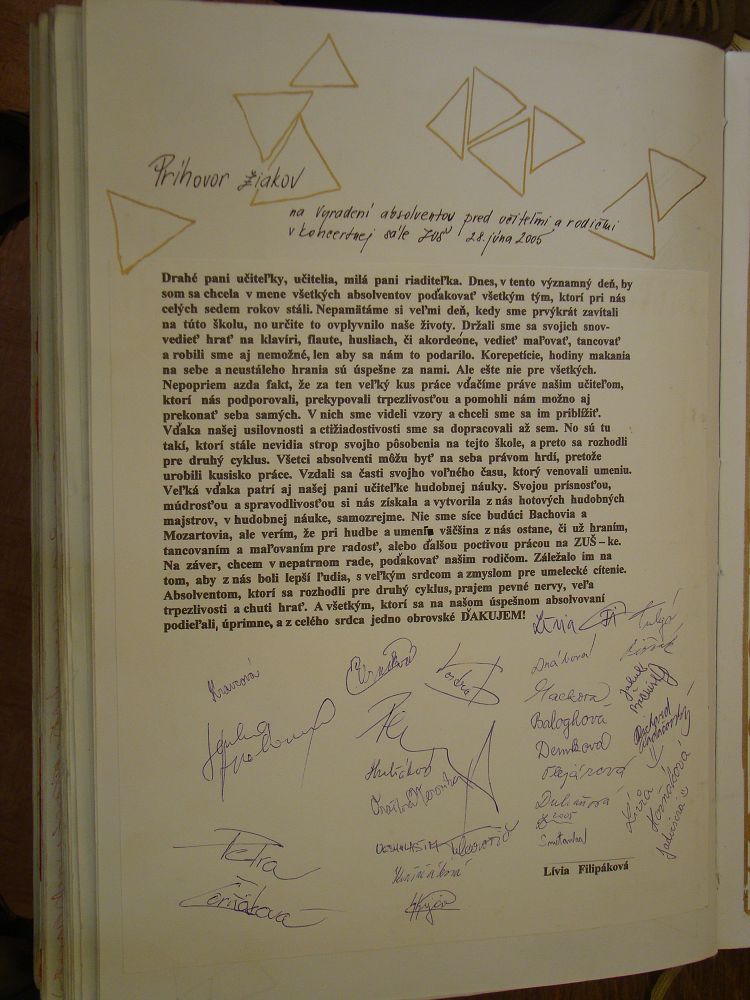 Príhovor žiakov
na Vyradení absolventov pred učiteľmi a rodičmi
v koncertnej sále ZUŠ 28. júna 2005
Drahé pani učiteľky, učitelia, milá pani riaditeľka. Dnes, v tento významný deň, by
som sa chcela v mene všetkých absolventov poďakovať všetkým tým, ktorí pri nás
celých sedem rokov stáli. Nepamätáme si veľmi deň, kedy sme prvýkrát zavítali
na túto školu, no určite to ovplyvnilo naše životy. Držali sme sa svojich snov-
vedieť hrať na klavíri, flaute, husliach, či akordeóne, vedieť maľovať, tancovať
a robili sme aj nemožné, len aby sa nám to podarilo. Korepetície, hodiny makania
na sebe a neustáleho hrania sú úspešne za nami. Ale ešte nie pre všetkých.
Nepopriem azda fakt, že za ten veľký kus práce vďačíme práve našim učiteľom,
ktorí nás podporovali, prekypovali trpezlivosťou a pomohli nám možno aj
prekonať seba samých. V nich sme videli vzory a chceli sme sa im priblížiť.
Vďaka našej usilovnosti a ctižiadostivosti sme sa dopracovali až sem. No sú tu
takí, ktorí stále nevidia strop svojho pôsobenia na tejto škole, a preto sa rozhodli
pre druhý cyklus. Všetci absolventi môžu byť na seba právom hrdí, pretože
urobili kusisko práce. Vzdali sa časti svojho voľného času, ktorý venovali umeniu.
Veľká vďaka patrí aj našej pani učiteľke hudobnej náuky. Svojou prísnosťou,
múdrosťou a spravodlivosťou si nás získala a vytvorila z nás hotových hudobných
majstrov, v hudobnej náuke, samozrejme. Nie sme síce budúci Bachovia a
Mozartovia, ale verím, že pri hudbe a umení väčšina z nás ostane, či už hraním,
tancovaním a maľovaním pre radosť, alebo ďalšou poctivou prácou na ZUŠ – ke.
Na záver, chcem v nepatrnom rade, poďakovať našim rodičom. Záležalo im na
tom, aby z nás boli lepší ľudia, s veľkým srdcom a zmyslom pre umelecké cítenie.
Absolventom, ktorí sa rozhodli pre druhý cyklus, prajem pevné nervy, veľa
trpezlivosti a chuti hrať. A všetkým, ktorí sa na našom úspešnom absolvovaní
podieľali, úprimne, a z celého srdca jedno obrovské ĎAKUJEM!
Kravcová
Mackova
Baloghová
Demkova
Petra
Lívia Filipáková